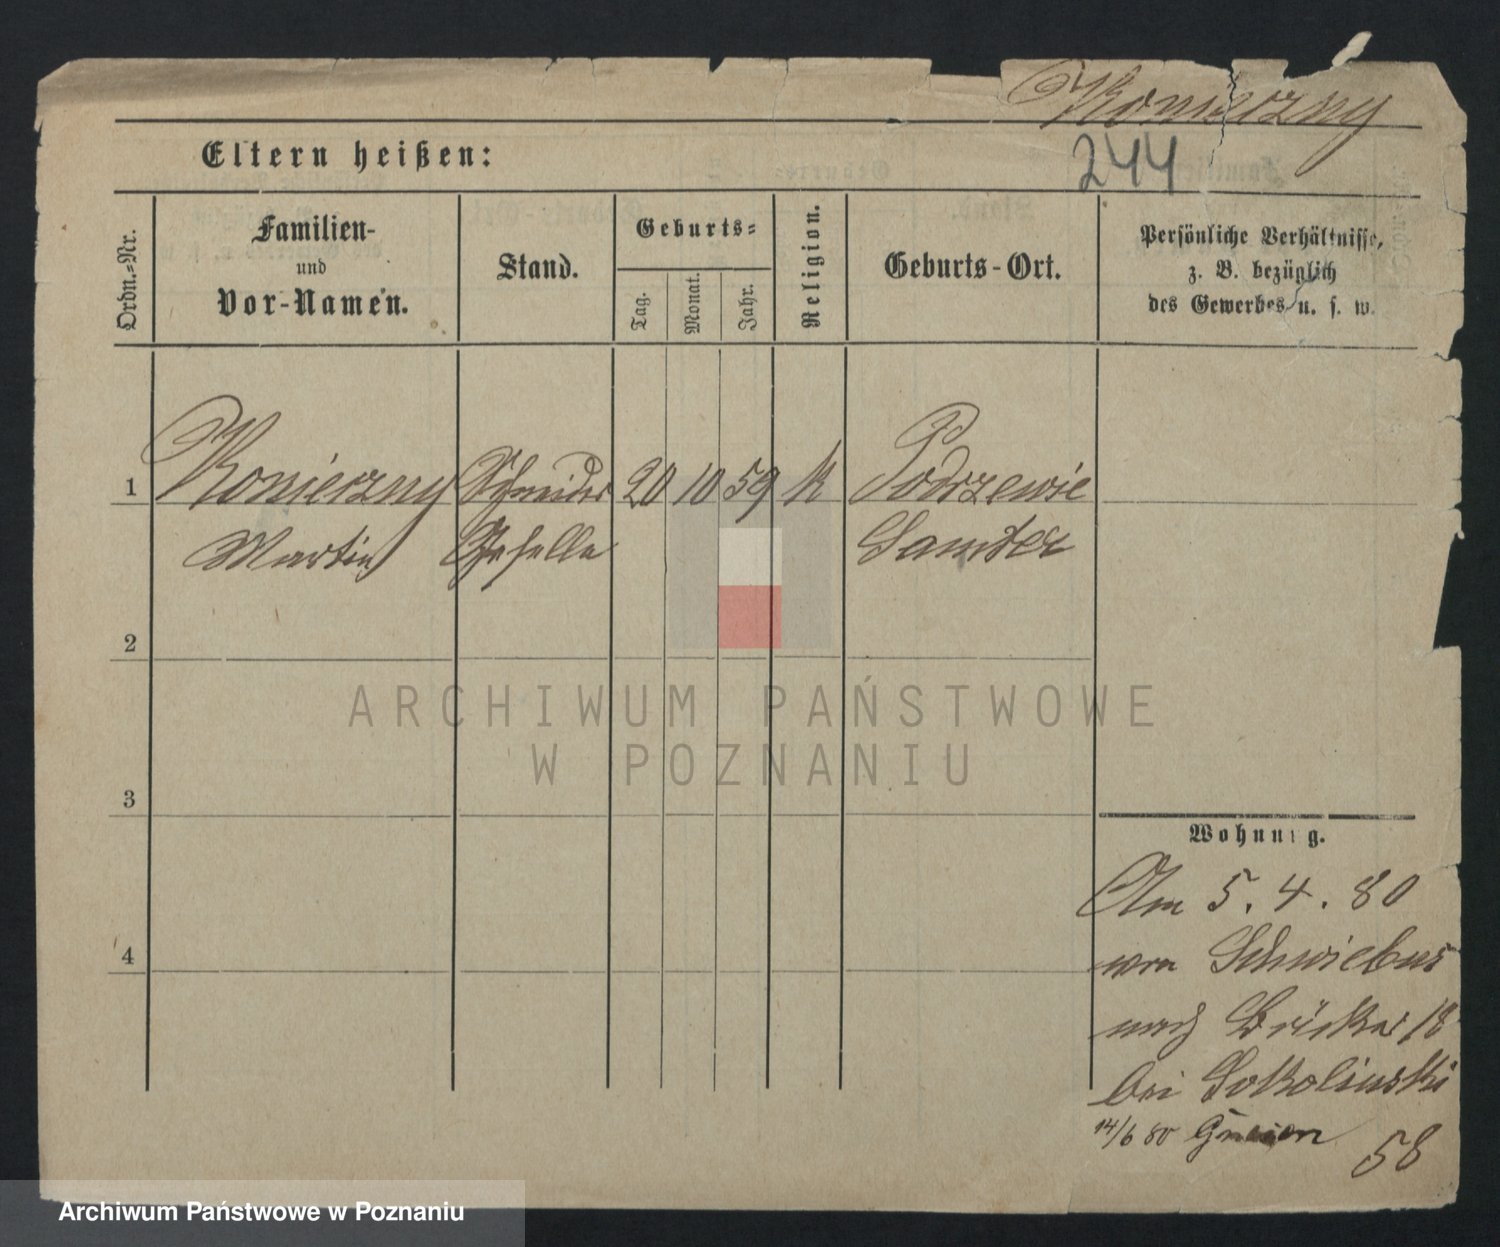 Konieczny
244
Eltern heißen:
Ordn.=Nr.
Familien-
und
Vor-Namen.
Stand.
Geburts=
Tag.
Monat.
Jahr.
Religion.
Geburts-Ort.
Persönliche Verhältnisse,
z. B. bezüglich
des Gewerbes u. s. w.
1
Konieczny
Schneider
20
10
59
k
Podrzewie
Martin
Geselle
Samter
2
ARCHIWUM PAŃSTWOWE
W POZNANIU
3
Wohnung.
Am 5. 4. 80
von Schwiebus
4
nach 18
bei Sokolinski
14/6 80
58
Archiwum Państwowe w Poznaniu